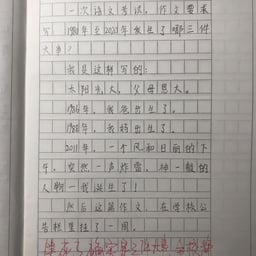 一次语文考试，作文要求
写1980年至2020年发生了哪三件
大事？
我是这样写的：
太阳光大，父母恩大。
1986年，我爸出生了。
1988年，我妈出生了。
2011年，一个风和日丽的下
午，突然一声炸雷，神一般的
人物—我诞生了！
然后这篇作文，在学校公
告栏里挂了一周。